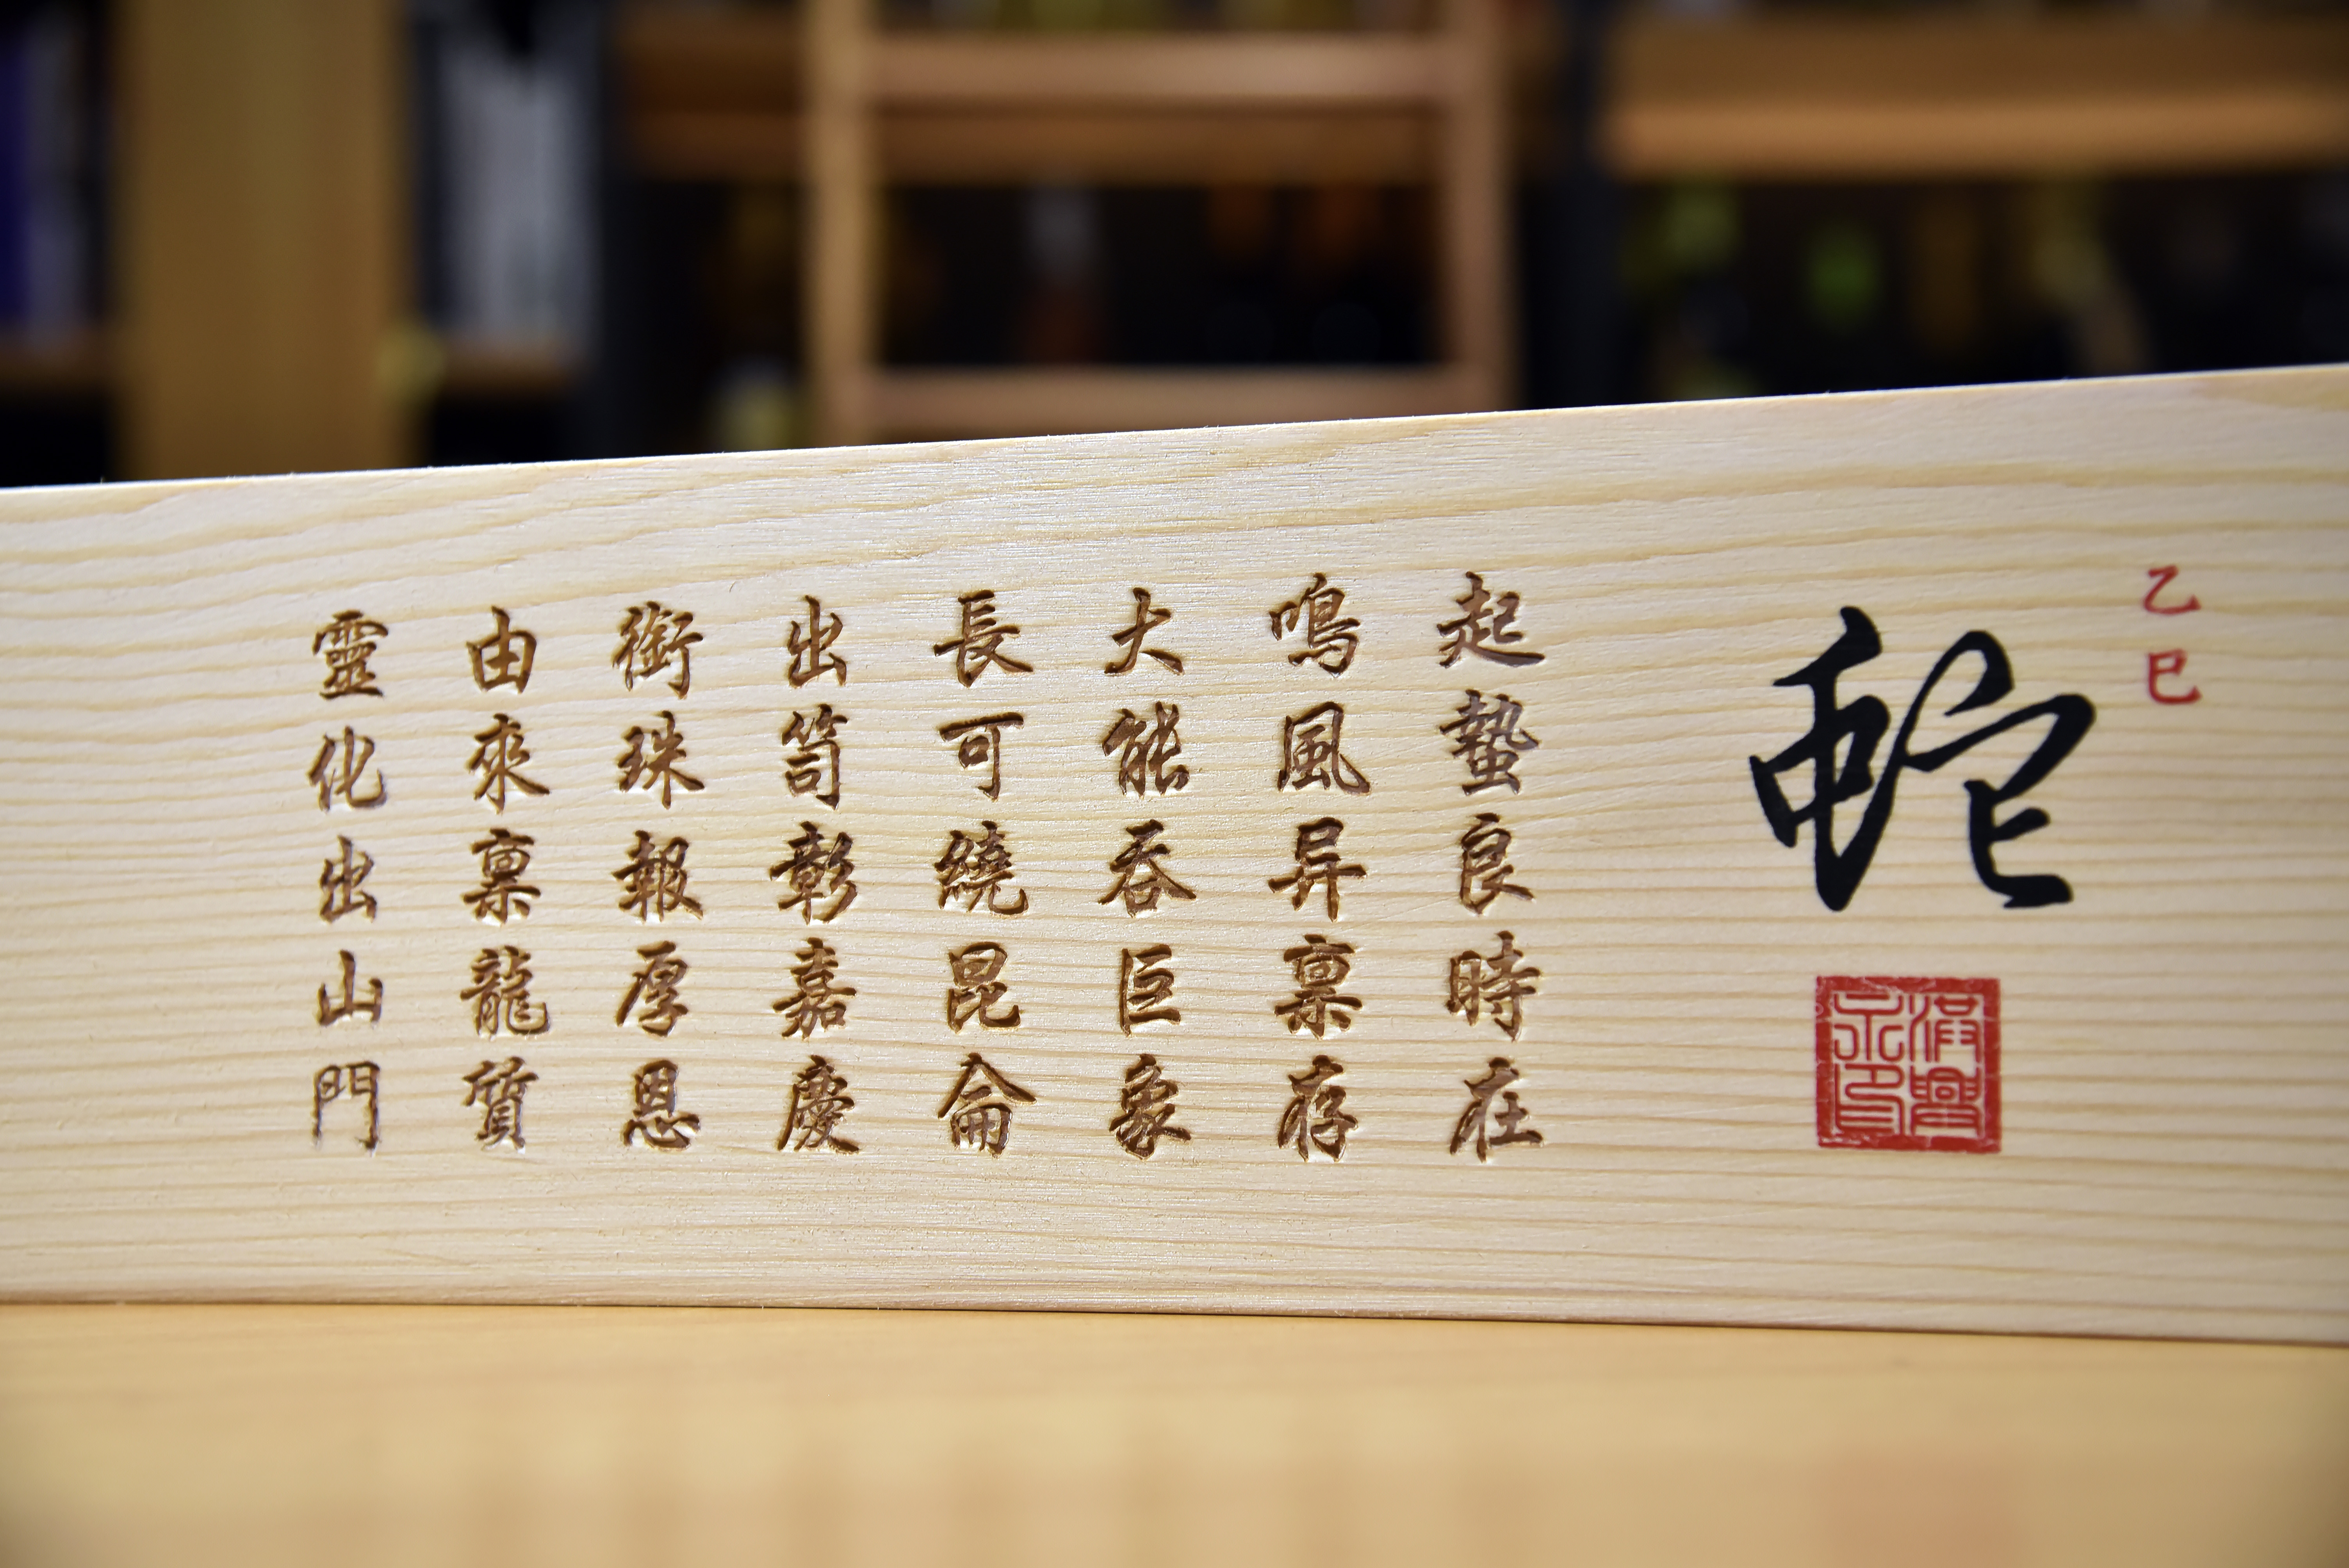 乙巳
蛇
起蟄良時在
鳴風异稟存
大能吞巨象
長可繞昆侖
出笥彰嘉慶
銜珠報厚恩
由來稟龍質
靈化出山門